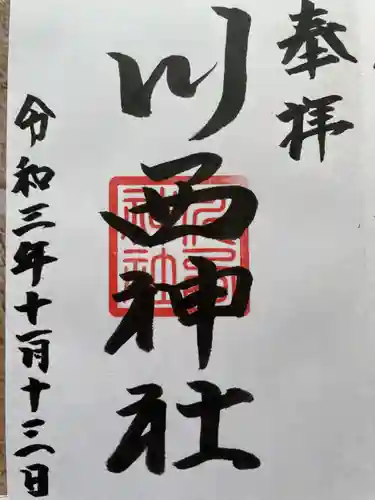 奉拝
川西神社
令和三年十一月十三日